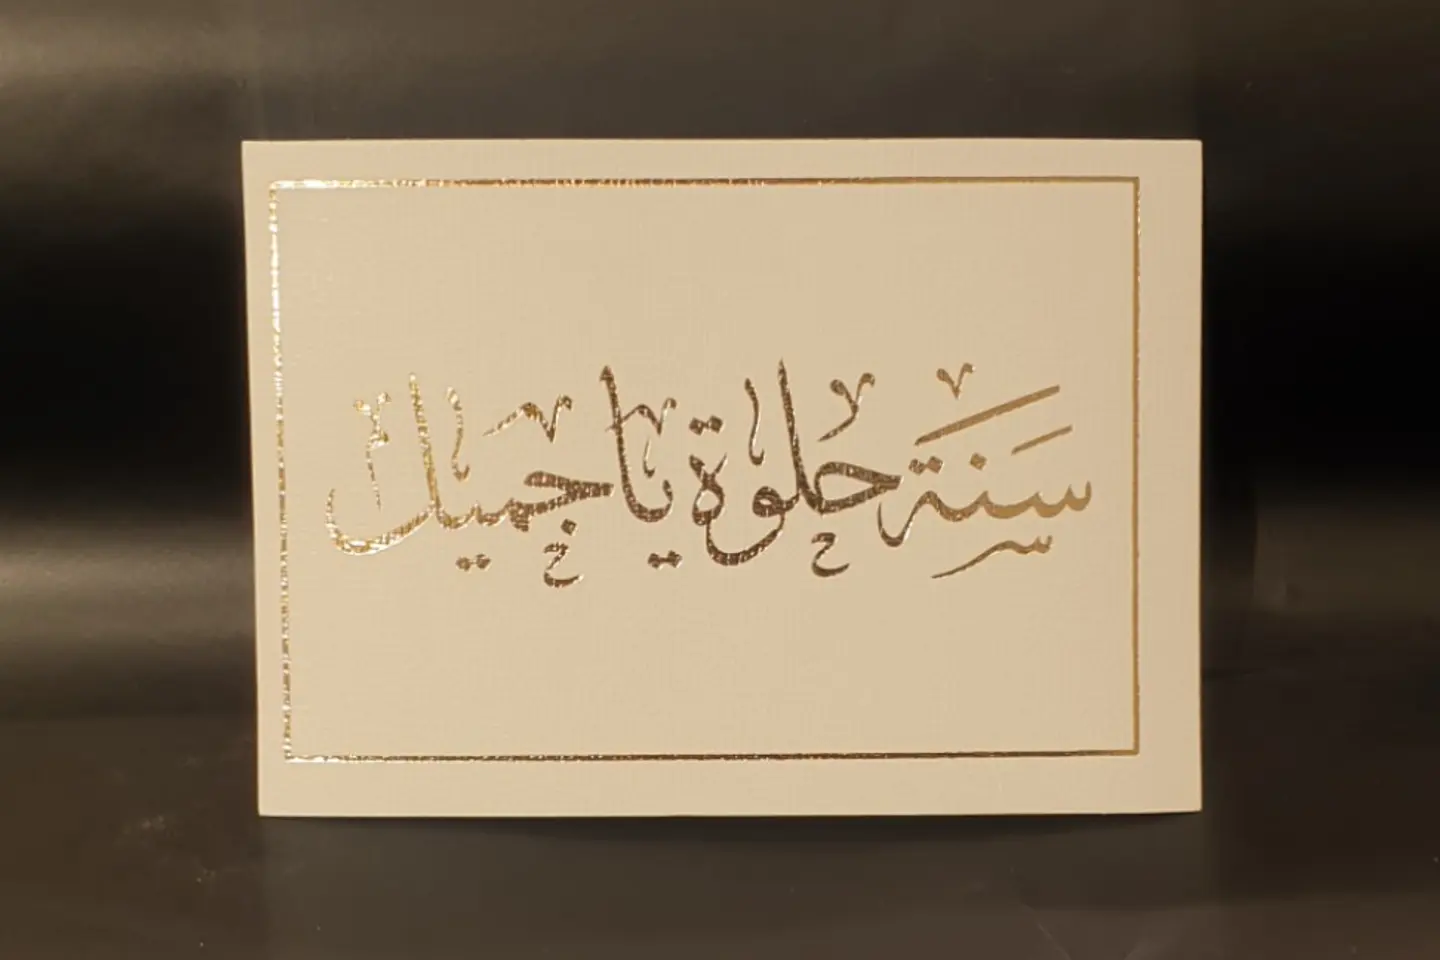 سنة حلوة يا جميل